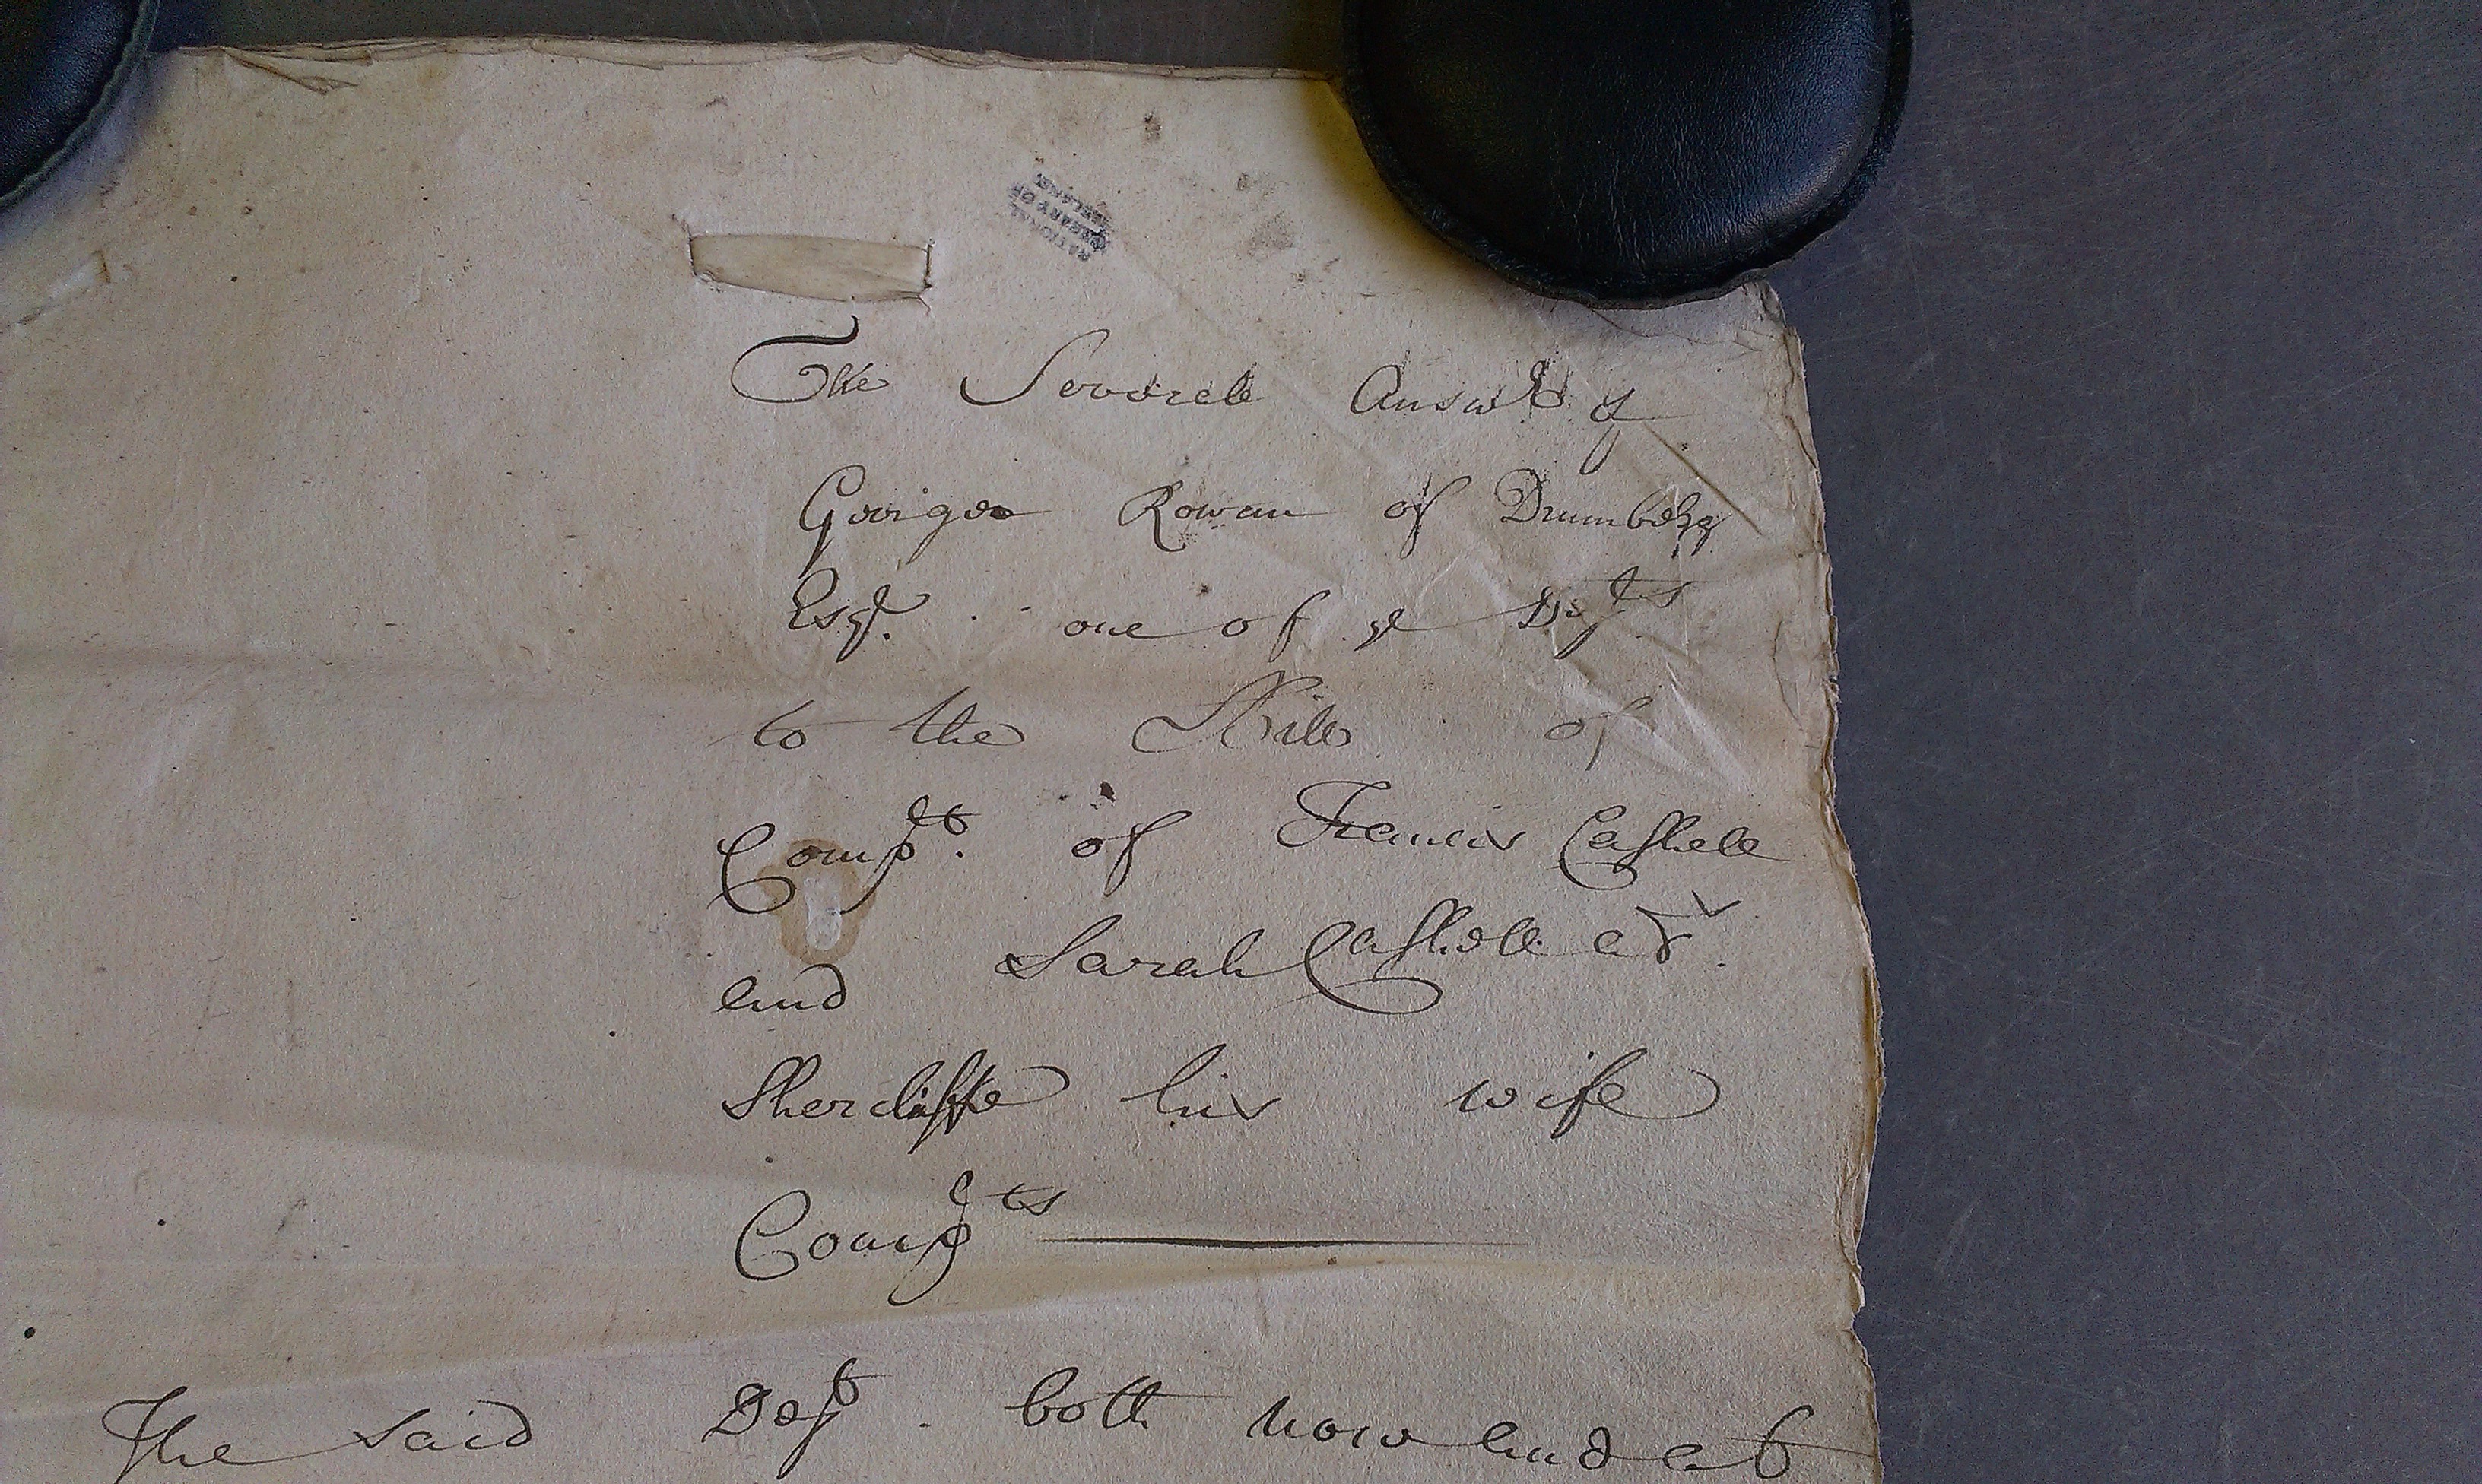 NATIONAL
LIBRARY OF
IRELAND
The Severall Answer of
George Rowan of
Esqr. one of ye Defts
to the Bill of
Complt. of Francis Cashell
and Sarah Cashell als
Shercliffe his wife
Complts
The said Deft. both now and at